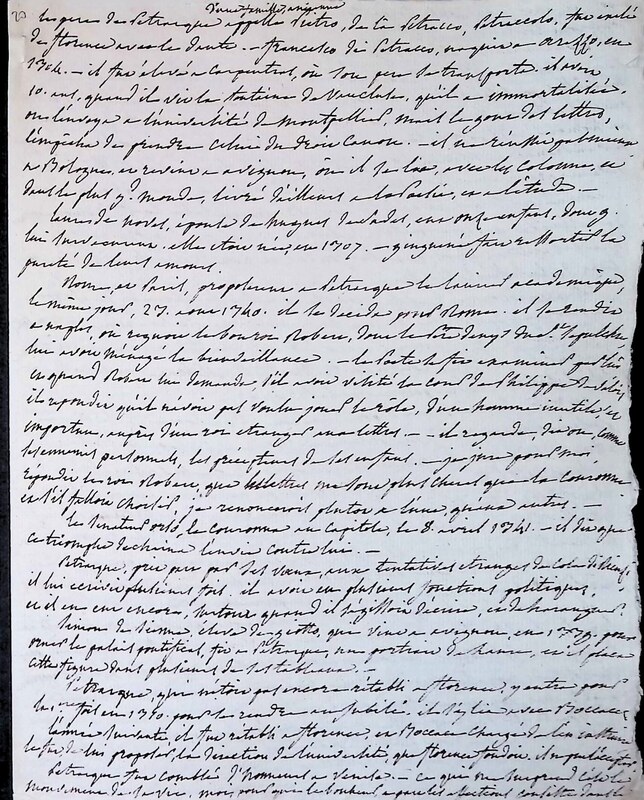 d'une famille
le pere de Petrarque appellé Pietro, de là Petracco, Petraccolo, fut exilé
de florence avec le dante. — francesco di Petracco, naquit a arezzo, en
1304. — il fut élevé a carpentras, où son pere se transporta. il avoit
10. ans, quand il vit la fontaine de Vaucluse, qu'il a immortalisée.
on l'envoya a l'université de Montpellier, mais le gout des lettres,
l'empêcha de prendre celui du droit Canon. — il ne réussit pas mieux
a Bologne, et revint a avignon, où il se lia, avec les Colonne, et
tout le plus gd. monde, livré d'ailleurs a la Poësie, et a l'étude. —
laure de noves, épouse de hugues de Sades, eut onze enfans, dont 9.
lui survecurent. elle étoit née, en 1307. — ginguené fait ressortir la
pureté de leurs amours.
Rome, et Paris, proposerent a Petrarque le laurier academique,
le même jour, 23. aout 1340. il se décida pour Rome. il se rendit
a naples, où regnoit le bon roi Robert, dont le Pere denys du St. Sepulchre,
lui avoit ménagé la bienveillance. — le Poete se fit examiner par lui
et quand Robert lui demanda s'il avoit visité la cour de Philippe de Valois
il repondit qu'il n'avoit pas voulu jouer le rôle, d'un homme inutile, et
importun, auprès d'un roi etranger aux lettres. — il regarde, dit on, comme
ses ennemis personnels, les précepteurs de ses enfans. — je jure pour moi,
répondit le roi Robert, que les lettres me sont plus cheres que la couronne
et s'il falloit choisir, je renoncerois plutôt a l'une, qu'aux autres. —
le senateur orso, le couronna au Capitole, le 8. avril 1341. — il dit que
ce triomphe déchaina l'envie contre lui. —
Petrarque, prit part par ses vœux, aux tentatives etranges de Cola di Rienzi,
il lui écrivit plusieurs fois. il avoit eu plusieurs fonctions politiques,
et il en eut encore, surtout quand il s'agissoit d'écrire, et de haranguer.
Simon de Sienne, eleve de giotto, qui vint a avignon, en 1339, pour
orner le palais pontifical, fit a Petrarque, un portrait de Laure, et il plaça
cette figure dans plusieurs de ses tableaux. —
Petrarque, qui n'étoit pas encore rétabli a florence, y entra pour
la 1re fois en 1350. pour se rendre au jubilé. il s'y lia avec Boccace
l'année suivante, il fut rétabli a florence, et Boccace chargé de l'en
de lui proposer la direction de l'université, que florence fondoit.
Petrarque fut comblé d'honneurs a Venise. — ce qui me surprend c'est le
mouvement de sa vie.